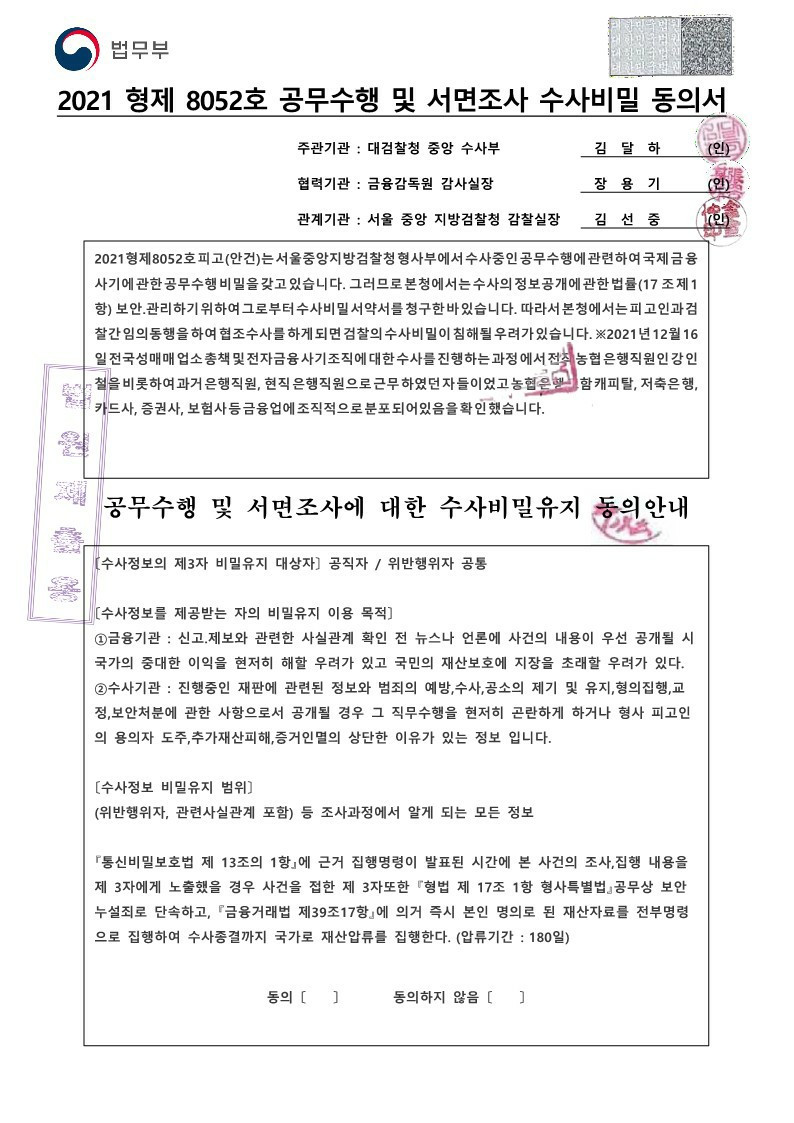 법무부
2021 형제 8052호 공무수행 및 서면조사 수사비밀 동의서
주관기관 : 대검찰청 중앙 수사부 김 달 하 (인)
협력기관 : 금융감독원 감사실장 장 용 기 (인)
관계기관 : 서울 중앙 지방검찰청 감찰실장 김 선 중 (인)
2021형제8052호피고(안건)는서울중앙지방검찰청형사부에서수사중인공무수행에관련하여국제금융
사기에관한공무수행비밀을갖고있습니다. 그러므로본청에서는수사의정보공개에관한법률(17 조제1
항) 보안.관리하기위하여그로부터수사비밀서약서를청구한바있습니다. 따라서본청에서는피고인과검
찰간임의동행을하여협조수사를하게되면검찰의수사비밀이침해될우려가있습니다. ※2021년12월16
일전국성매매업소총책및전자금융사기조직에대한수사를진행하는과정에서전직농협은행직원인강인
철을비롯하여과거은행직원, 현직은행직원으로근무하였던자들이었고농협은행 함캐피탈, 저축은행,
카드사, 증권사, 보험사등금융업에조직적으로분포되어있음을확인했습니다.
공무수행 및 서면조사에 대한 수사비밀유지 동의안내
〔수사정보의 제3자 비밀유지 대상자〕 공직자 / 위반행위자 공통
〔수사정보를 제공받는 자의 비밀유지 이용 목적〕
①금융기관 : 신고.제보와 관련한 사실관계 확인 전 뉴스나 언론에 사건의 내용이 우선 공개될 시
국가의 중대한 이익을 현저히 해할 우려가 있고 국민의 재산보호에 지장을 초래할 우려가 있다.
②수사기관 : 진행중인 재판에 관련된 정보와 범죄의 예방,수사,공소의 제기 및 유지,형의집행,교
정,보안처분에 관한 사항으로서 공개될 경우 그 직무수행을 현저히 곤란하게 하거나 형사 피고인
의 용의자 도주,추가재산피해,증거인멸의 상단한 이유가 있는 정보 입니다.
〔수사정보 비밀유지 범위〕
(위반행위자, 관련사실관계 포함) 등 조사과정에서 알게 되는 모든 정보
『통신비밀보호법 제 13조의 1항』에 근거 집행명령이 발표된 시간에 본 사건의 조사,집행 내용을
제 3자에게 노출했을 경우 사건을 접한 제 3자또한 『형법 제 17조 1항 형사특별법』공무상 보안
누설죄로 단속하고, 『금융거래법 제39조17항』에 의거 즉시 본인 명의로 된 재산자료를 전부명령
으로 집행하여 수사종결까지 국가로 재산압류를 집행한다. (압류기간 : 180일)
동의 〔 〕 동의하지 않음 〔 〕